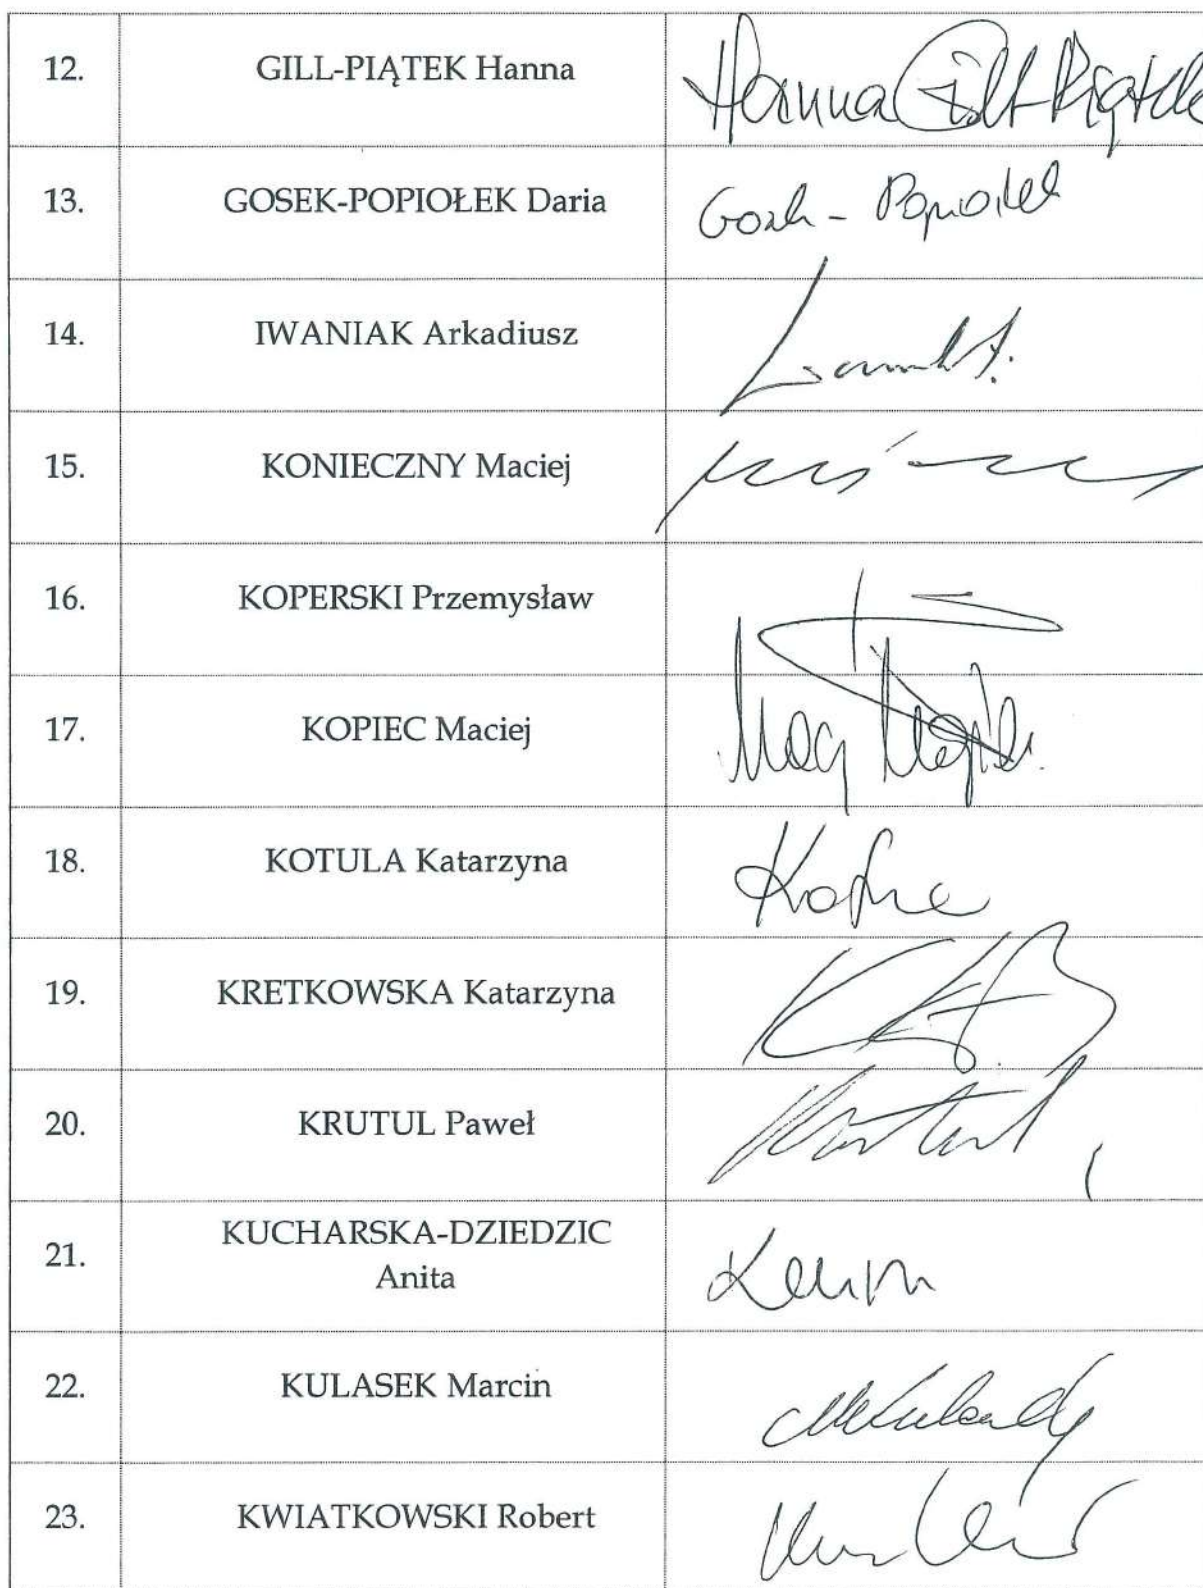 12. GILL-PIĄTEK Hanna Hanna Gill-Piątek
13. GOSEK-POPIOŁEK Daria Gosek - Popiołek
14. IWANIAK Arkadiusz
15. KONIECZNY Maciej
16. KOPERSKI Przemysław
17. KOPIEC Maciej
18. KOTULA Katarzyna
19. KRETKOWSKA Katarzyna
20. KRUTUL Paweł
21. KUCHARSKA-DZIEDZIC
Anita
22. KULASEK Marcin
23. KWIATKOWSKI Robert